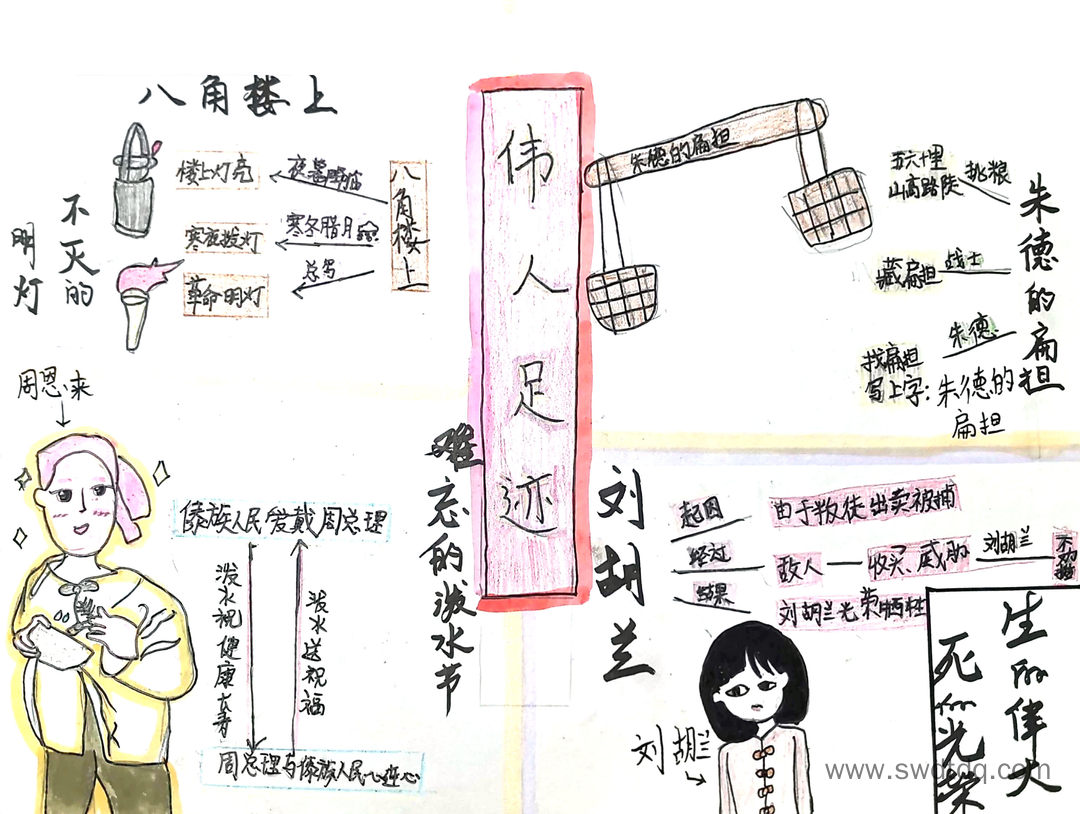 八角楼上
不灭的
明灯
楼上灯亮
夜幕降临
寒夜拨灯
寒冬腊月
革命明灯
总写
八角楼上
伟人足迹
朱德的扁担
五六十里
山高路陡
挑粮
藏扁担
战士
朱德
找扁担
写上字:朱德的
扁担
朱德的扁担
周恩来
傣族人民爱戴周总理
泼水祝健康长寿
泼水送祝福
周总理与傣族人民心连心
难忘的泼水节
刘胡兰
起因
由于叛徒出卖被捕
经过
敌人
收买、威胁
刘胡兰
结果
刘胡兰光荣牺牲
刘胡兰
生的伟大
死的光荣
www.swdtdq.com